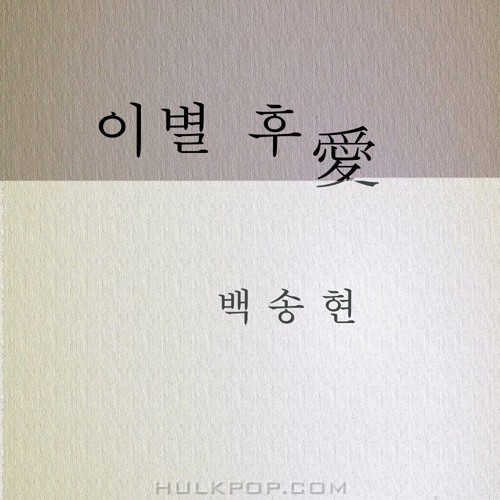 이별 후愛
백송현
HULKPOP.COM